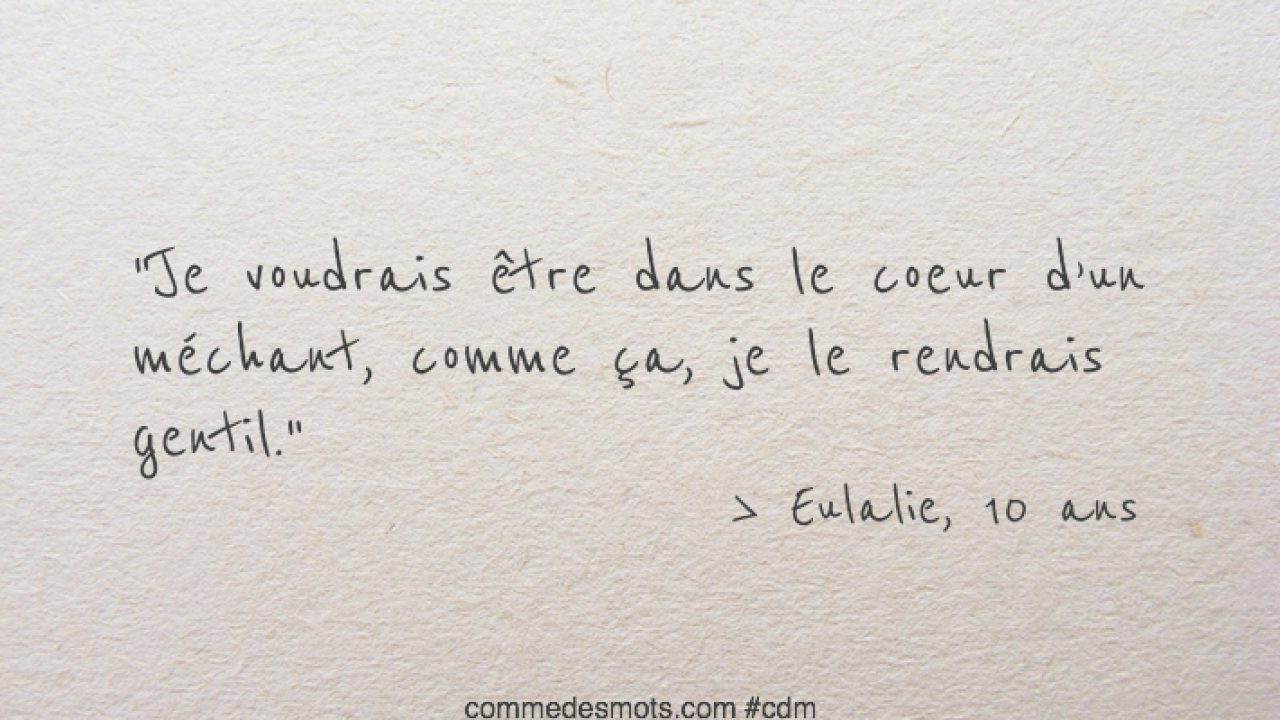 "Je voudrais être dans le coeur d'un
méchant, comme ça, je le rendrais
gentil."
> Eulalie, 10 ans
commedesmots.com #cdm